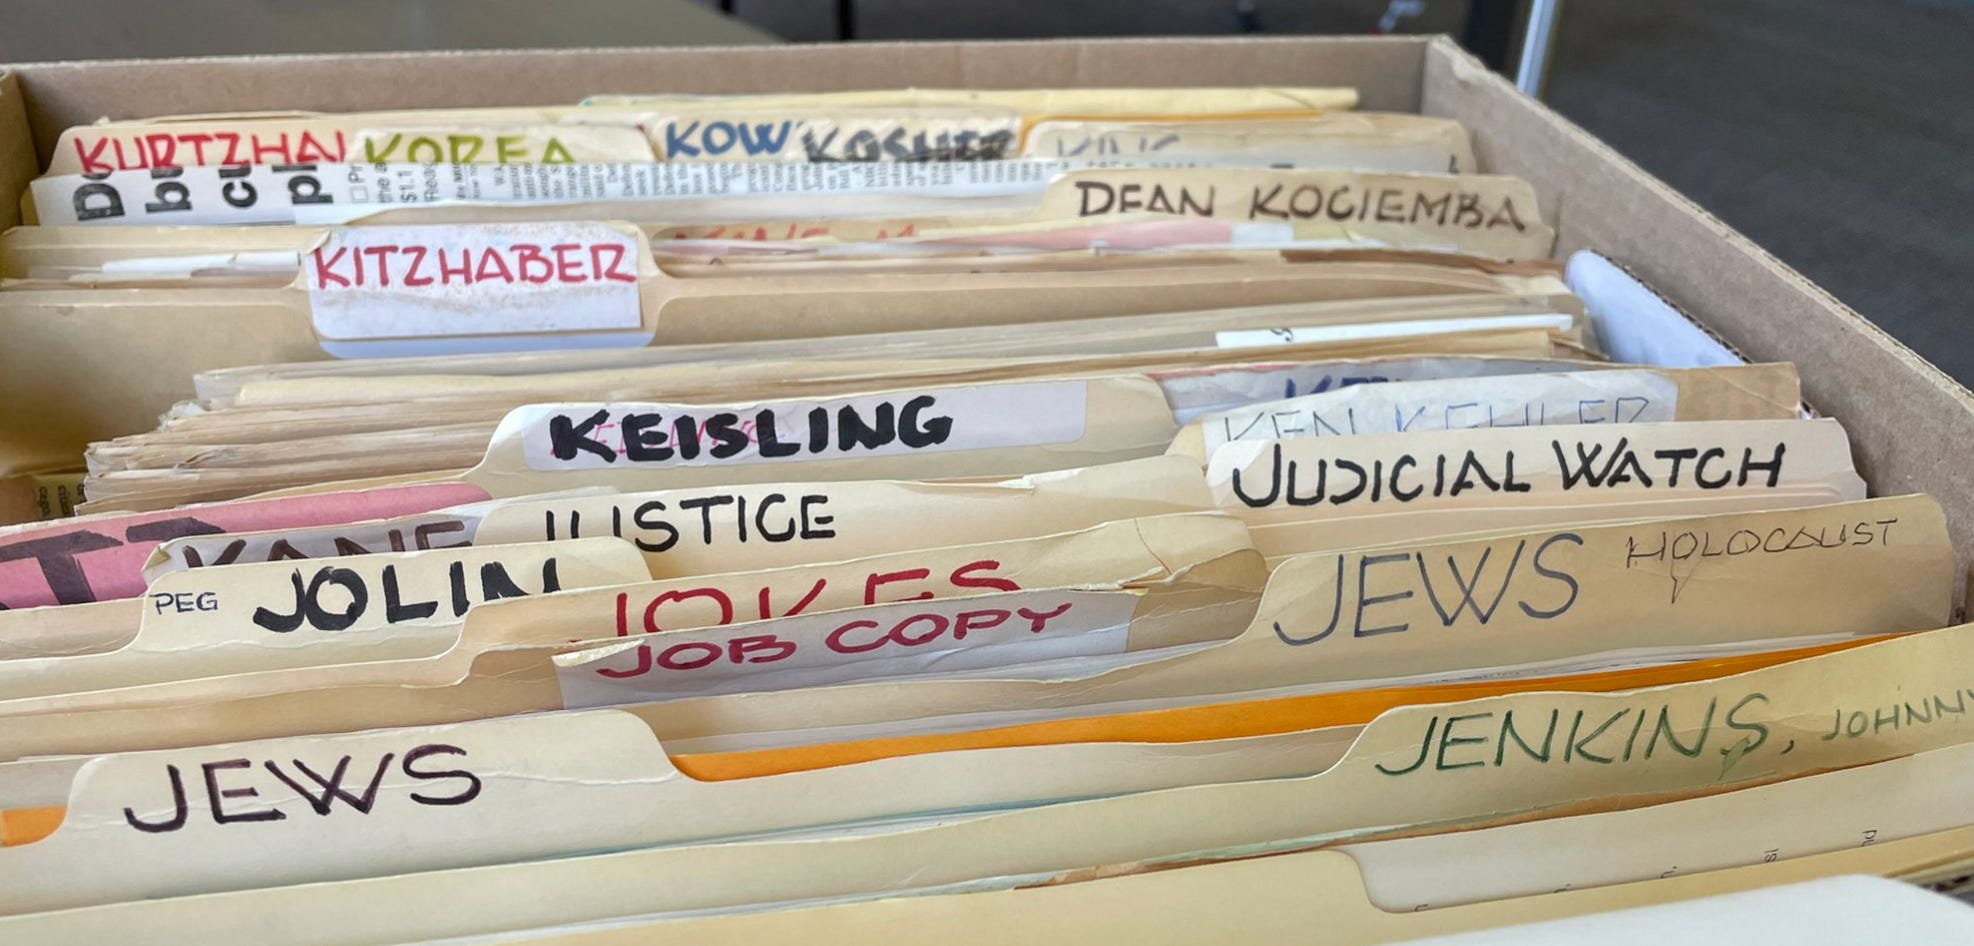 KOREA
KOW
KOSHER
DEAN KOCIEMBA
KITZHABER
KEISLING
KEN KEHLER
JUDICIAL WATCH
JUSTICE
KANE
PEG JOLIN
JOKES
JOB COPY
JEWS HOLOCAUST
JEWS
JENKINS, JOHNNY